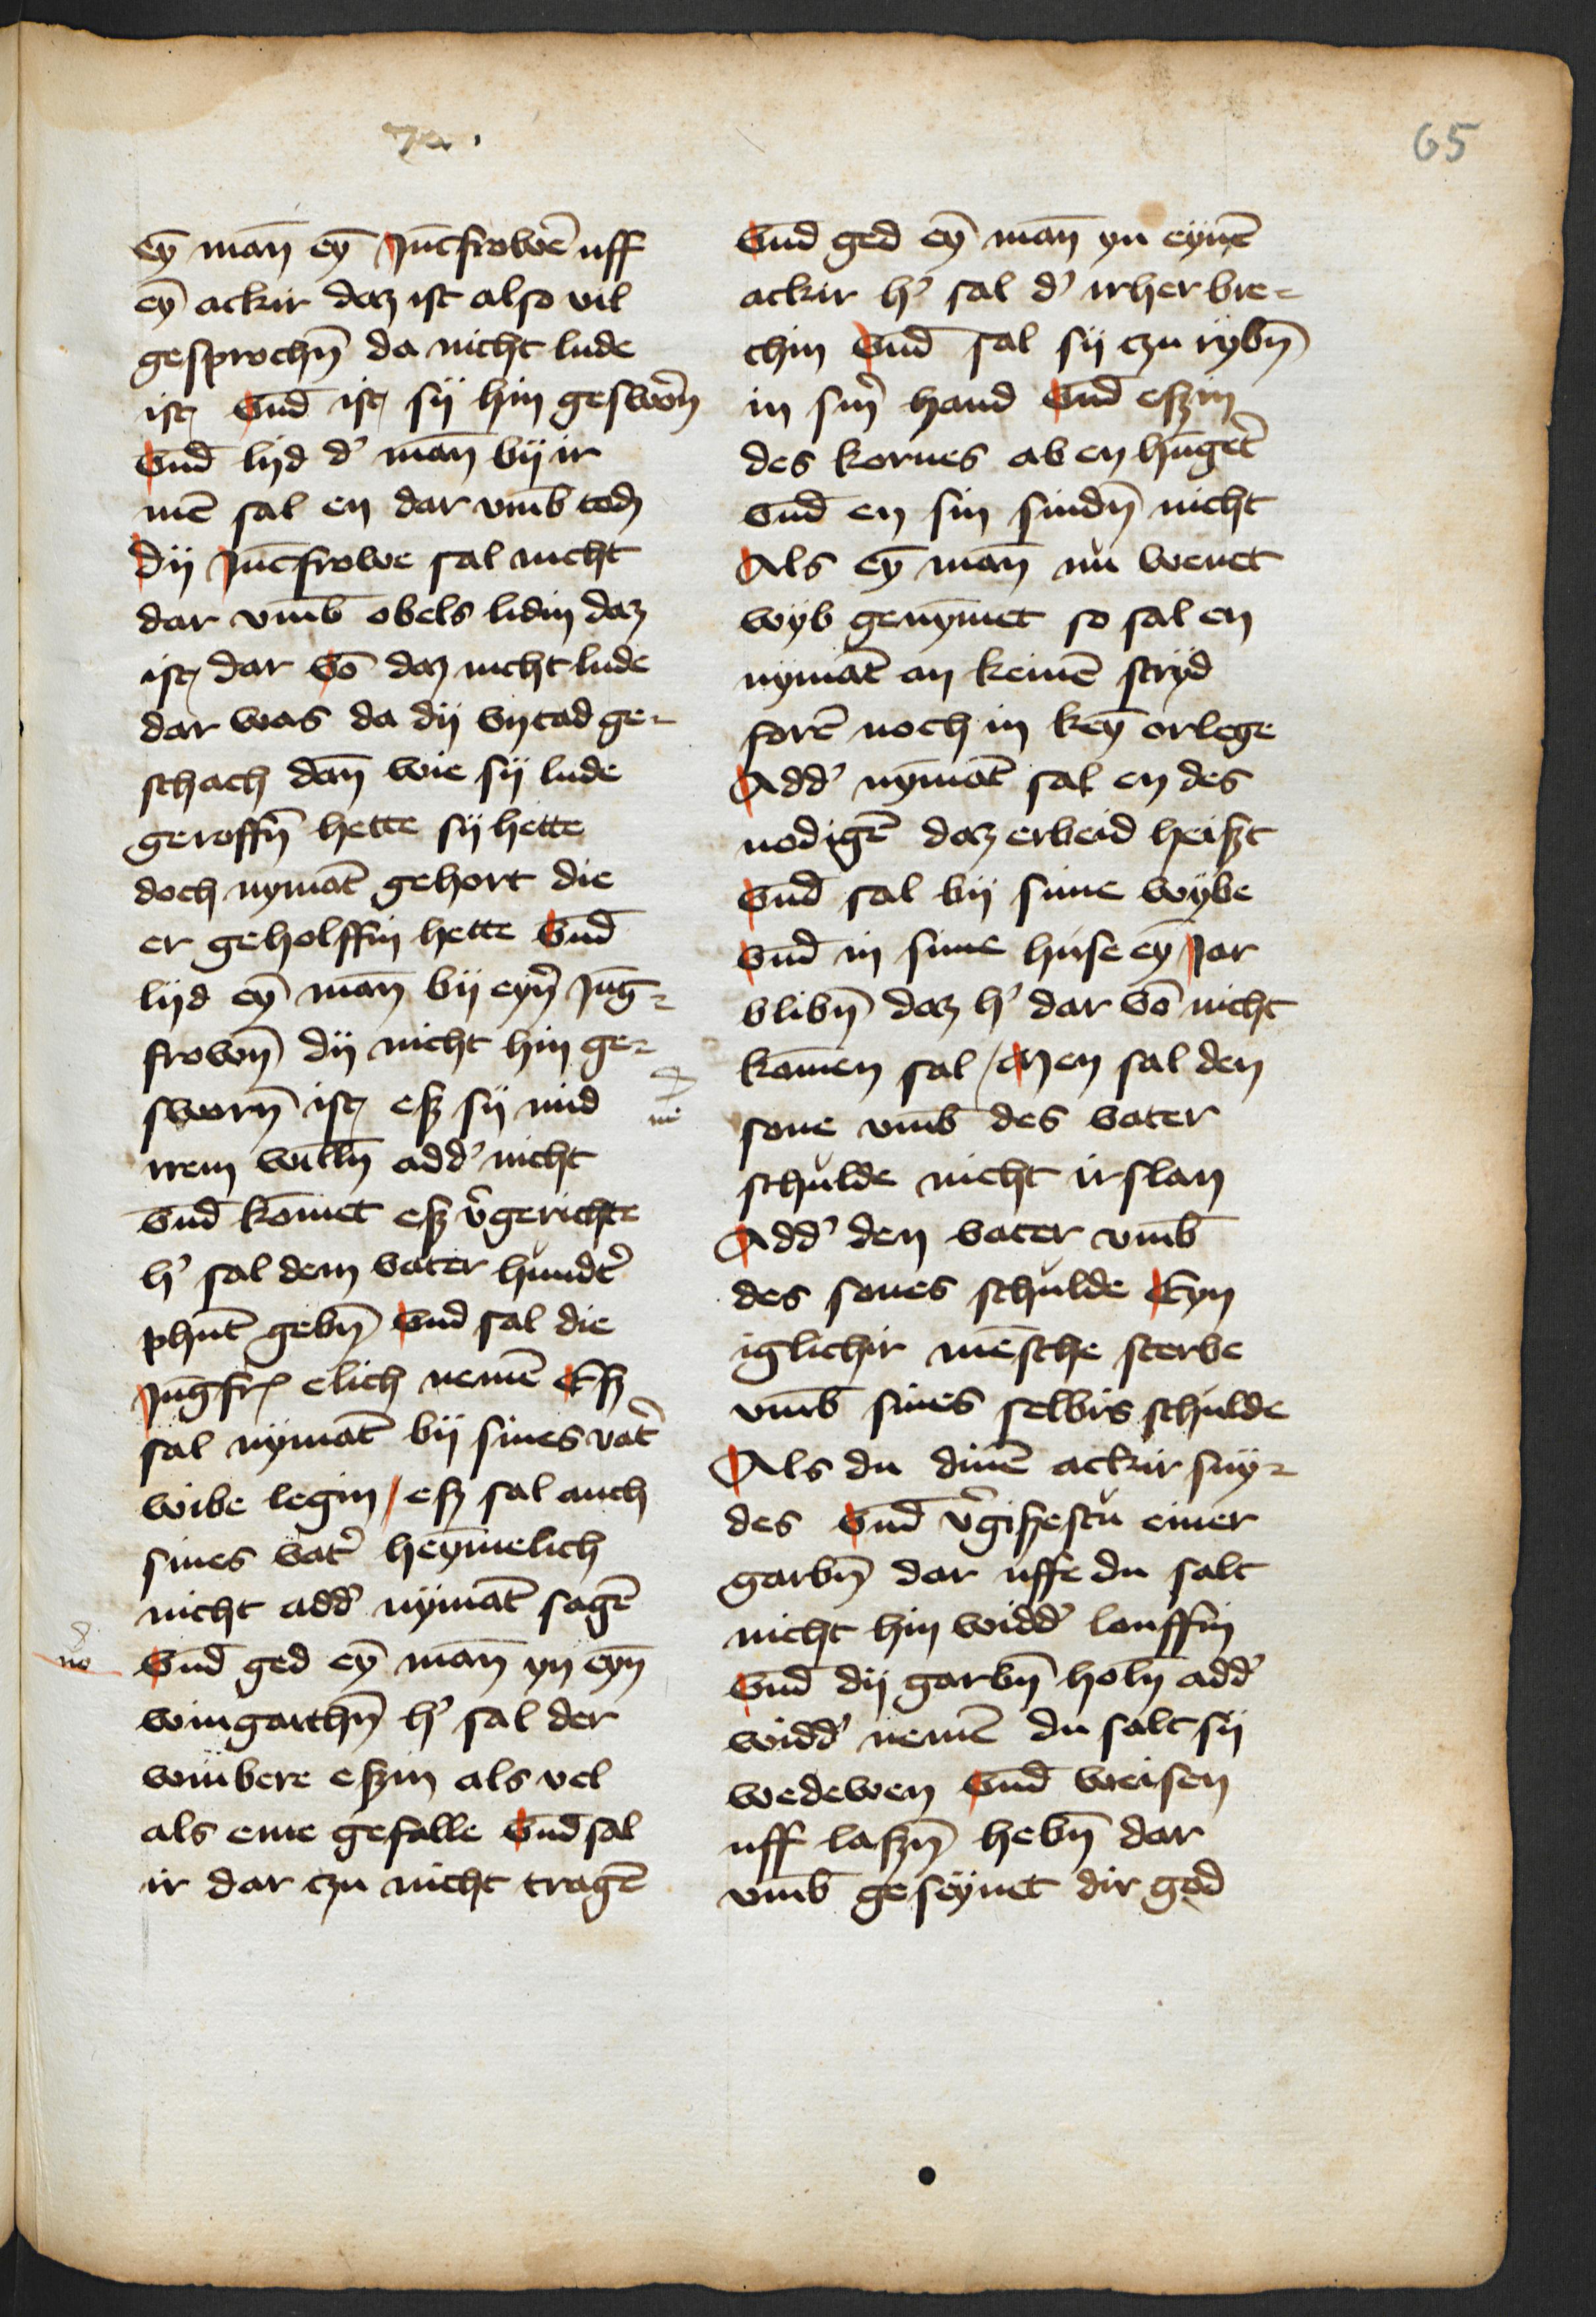 65
eȳ man̄ eȳ Juncfrowē uff
eȳ ackir daz ist also vil
gesprochn̄ da nicht lude
ist Vnd̄ ist sij hin geswor̄n
Vnd̄ lijd d' man̄ bij ir
mē sal en dar vmb̄ todn
dij Juncfrowe sal nicht
dar vmb̄ obels lidin daz
ist dar vō daz nicht lude
dar was da dij vntad ge-
schach dan̄ wie sij lude
geroffn̄ hette sij hette
doch nymāt gehort die
er geholffin hette Vnd̄
lijd eȳ man̄ bij eyn̄ Jung-
frown̄ dij nicht hin ge-
sworn̄ ist esz sij mid
irem willn̄ add' nicht
Vnd̄ komet esz v̄gerichte
h' sal dem vater hundt'
phūt gebn̄ Vnd sal die
Jungfr̄ elich nemē Esz
sal nymāt bij sines vat'
wibe legin / esz sal auch
sines vat' heymelich
nicht add' nymāt sagē
Vnd̄ ged eȳ man̄ yn eyn̄
wingarthn̄ h' sal der
winbere eszin als vel
als eme gefalle Vnd̄ sal
ir dar czu nicht tragē
Vnd ged eȳ man̄ yn eynē
ackir h' sal d' irher bre-
chin Vnd̄ sal sij czu rybn̄
in sin' hand Vnd̄ eszin
des kornes ab en hunget'
Vnd̄ en sin sindn̄ nicht
Als eȳ man̄ nu wenet
wyb genymet so sal en
nymāt an keinē stryd
forē noch in keȳ orlege
Add' nymāt sal en des
nodigē daz erbeid heiszt
Vnd̄ sal bij sime wybe
Vnd̄ in sime huse eȳ Jar
blibn̄ daz h' dar vō nicht
komen sal / Men sal den
sone vmb̄ des vater
schulde nicht irslan
Add' den vater vmb̄
des sones schulde Eyn
iglichir mēsche sterbe
vmb̄ sines selbis schulde
Als du dinē ackir sny-
des Vnd̄ v̄giszestu einer
garbn̄ dar uffe du salt
nicht hin widd' louffin
Vnd̄ dij garbn̄ holn̄ add'
widd' nemē du salt sij
wedewen Vnd̄ weisen
uff laszn̄ hebn̄ dar
vmb̄ geseynet dir god